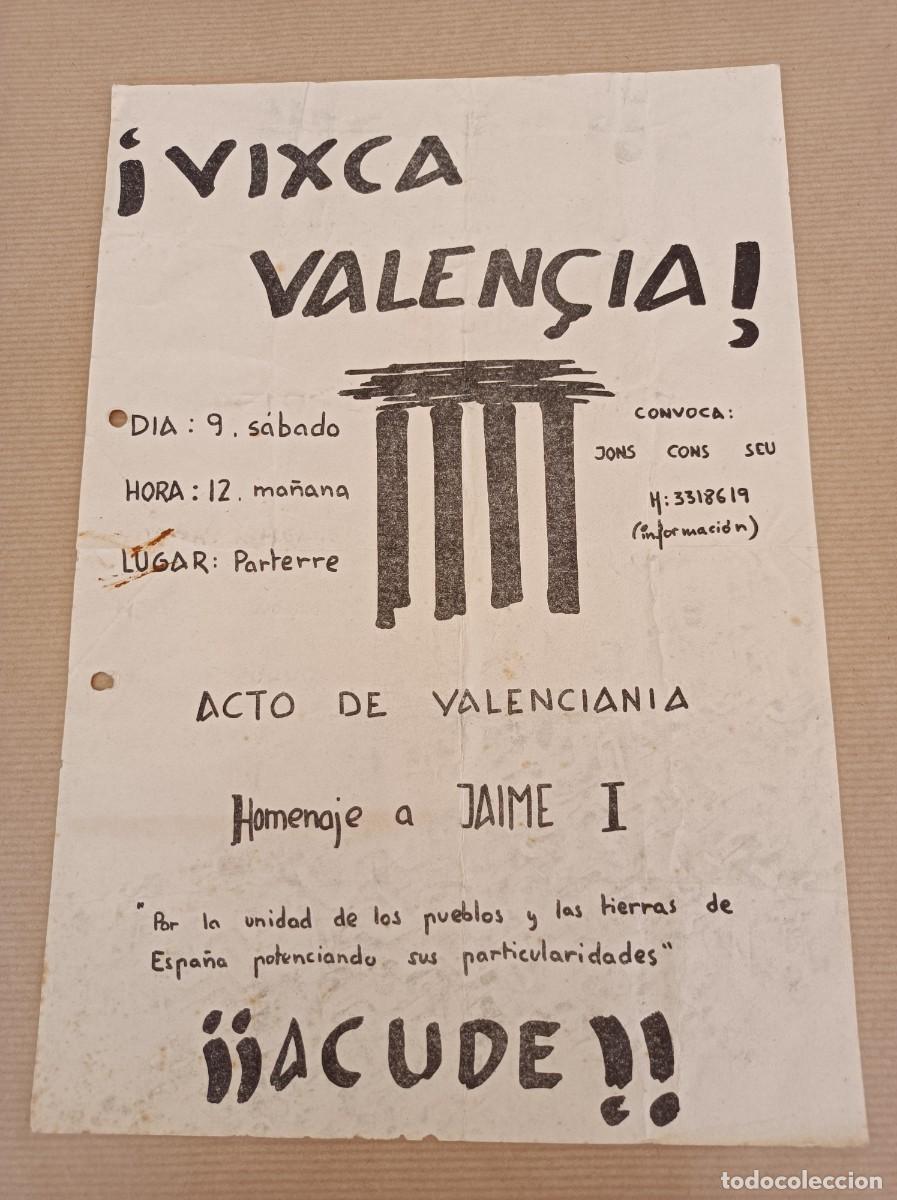 ¡VIXCA
VALENÇIA!
DIA: 9. sábado
HORA: 12. mañana
LUGAR: Parterre
CONVOCA:
JONS CONS SEU
H: 3318619
(información)
ACTO DE VALENCIANIA
Homenaje a JAIME I
"Por la unidad de los pueblos y las tierras de
España potenciando sus particularidades"
¡¡ACUDE!!
todocoleccion